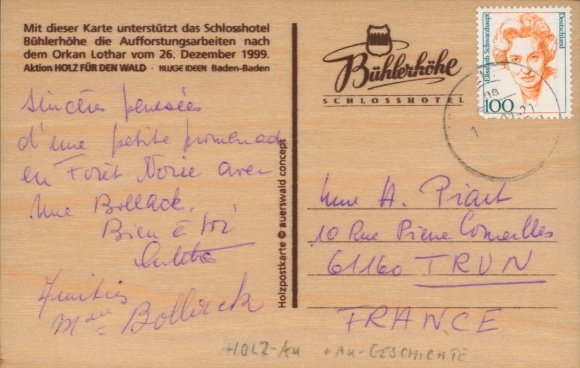 Mit dieser Karte unterstützt das Schlosshotel
Bühlerhöhe die Aufforstungsarbeiten nach
dem Orkan Lothar vom 26. Dezember 1999.
Aktion HOLZ FÜR DEN WALD · KLUGE IDEEN Baden-Baden
Sincères pensées
d'une petite promenade
en Forêt Noire avec
Mme Bollack.
Bien à toi
Amitiés
Mme Bollack
Holzpostkarte © auerswald concept
Bühlerhöhe
SCHLOSSHOTEL
Elisabeth Schwarzhaupt
Deutschland
100
Mme A. Piart
10 Rue Pierre Corneilles
61160 TRUN
FRANCE
HOLZ-AK + AK-GESCHICHTE